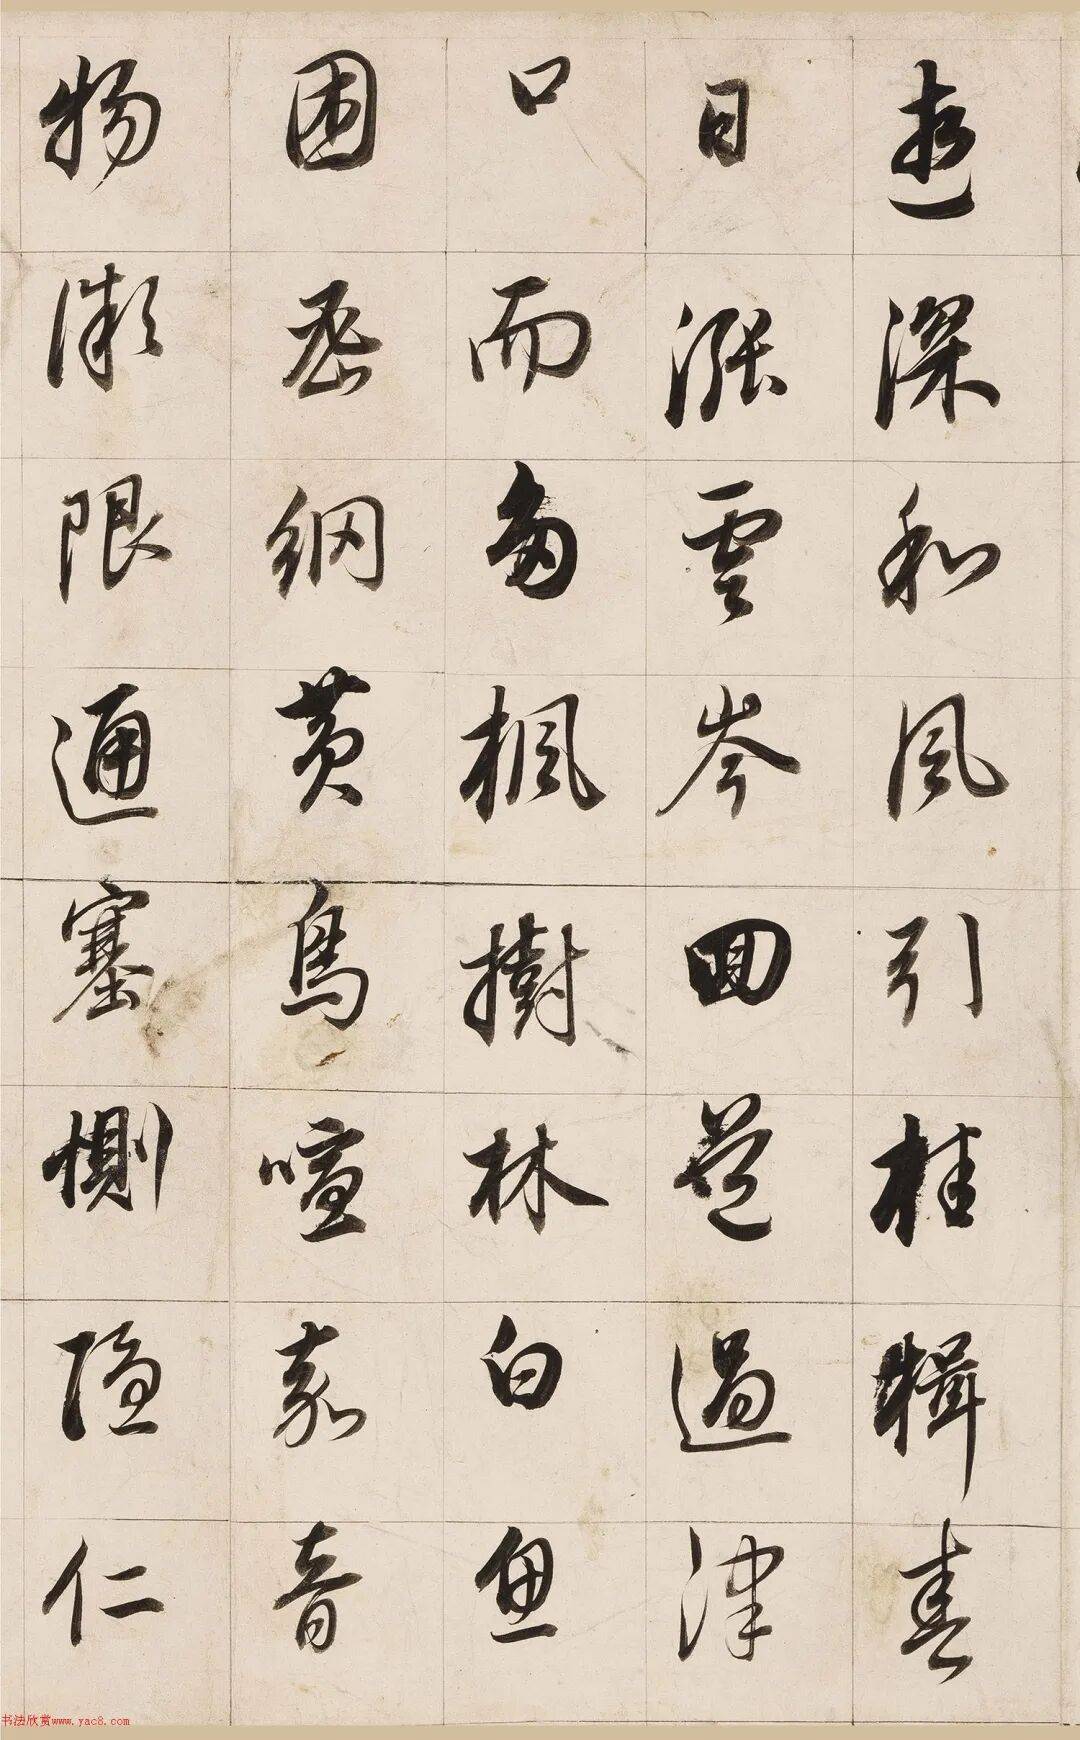 遊深和風引桂楫春
日漲雲岑回苍過津
口而多楓樹林白魚
困密網黄鳥喧嘉音
物微限通塞惻隱仁
书法欣赏www.yac8.com